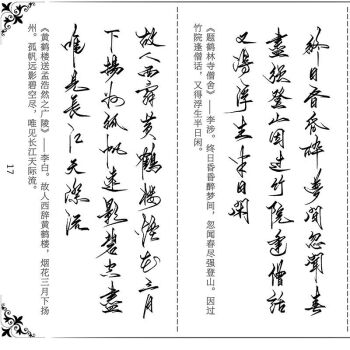 終日昏昏醉夢間忽聞春
盡強登山因過竹院逢僧話
又得浮生半日閑
《题鹤林寺僧舍》——李涉。终日昏昏醉梦间,忽闻春尽强登山。因过
竹院逢僧话,又得浮生半日闲。
故人西辭黃鶴樓煙花三月
下揚州孤帆遠影碧空盡
唯見長江天際流
《黄鹤楼送孟浩然之广陵》——李白。故人西辞黄鹤楼,烟花三月下扬
州。孤帆远影碧空尽,唯见长江天际流。
17